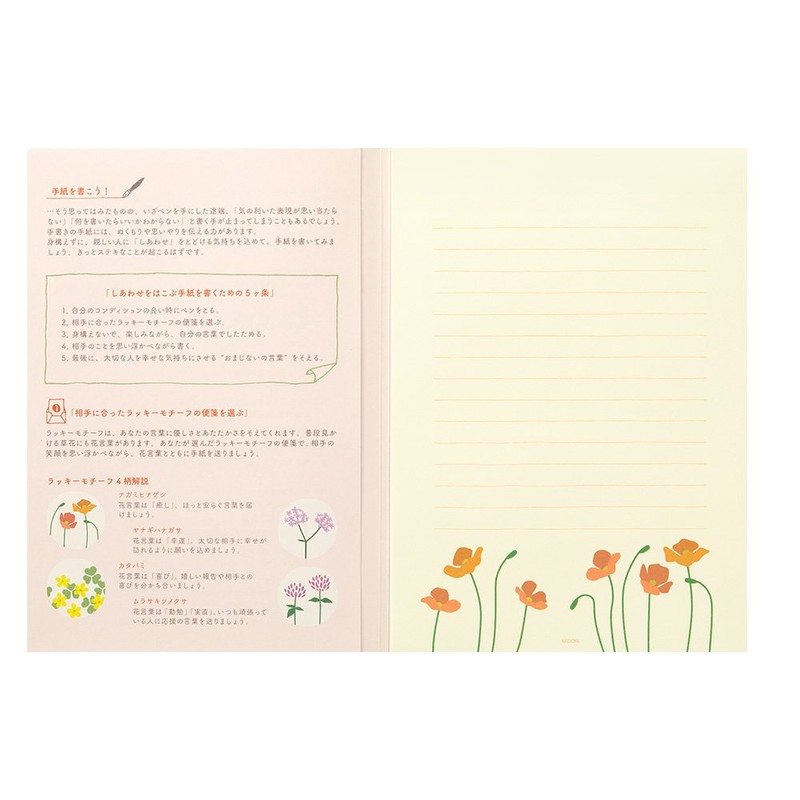 手紙を書こう！
…そう思ってはみたものの、いざペンを手にした途端、「気の利いた表現が思い当たら
ない」「何を書いたらいいかわからない」と書く手が止まってしまうこともあるでしょう。
手書きの手紙には、ぬくもりや思いやりを伝える力があります。
身構えずに、親しい人に「しあわせ」をとどける気持ちを込めて、手紙を書いてみま
しょう。きっとステキなことが起こるはずです。
「しあわせをはこぶ手紙を書くための5ヶ条」
1, 自分のコンディションの良い時にペンをとる。
2, 相手に合ったラッキーモチーフの便箋を選ぶ。
3, 身構えないで、楽しみながら、自分の言葉でしたためる。
4, 相手のことを思い浮かべながら書く。
5, 最後に、大切な人を幸せな気持ちにさせる“おまじないの言葉”をそえる。
「相手に合ったラッキーモチーフの便箋を選ぶ」
ラッキーモチーフは、あなたの言葉に優しさとあたたかさをそえてくれます。普段見か
ける草花にも花言葉があります。あなたが選んだラッキーモチーフの便箋で、相手の
笑顔を思い浮かべながら、花言葉とともに手紙を送りましょう。
ラッキーモチーフ4柄解説
ナガミヒナゲシ
花言葉は「癒し」。ほっと安らぐ言葉を届
けましょう。
ヤナギハナガサ
花言葉は「幸運」。大切な相手に幸せが
訪れるように願いを込めましょう。
カタバミ
花言葉は「喜び」。嬉しい報告や相手との
喜びを分かち合いましょう。
ムラサキツメクサ
花言葉は「勤勉」「実直」。いつも頑張って
いる人に応援の言葉を送りましょう。